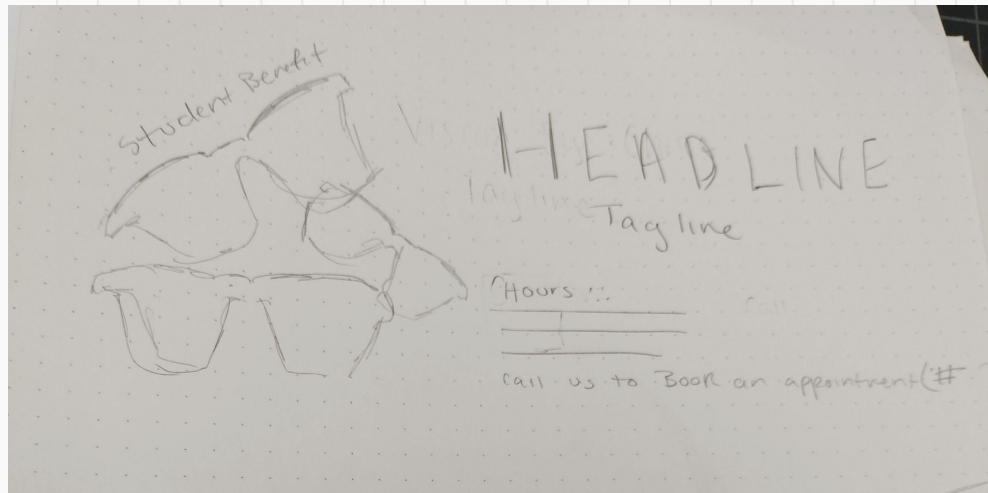 Student Benefit
HEADLINE
Tagline
Tagline
Hours :::
Call
call us to Book an appointment (#